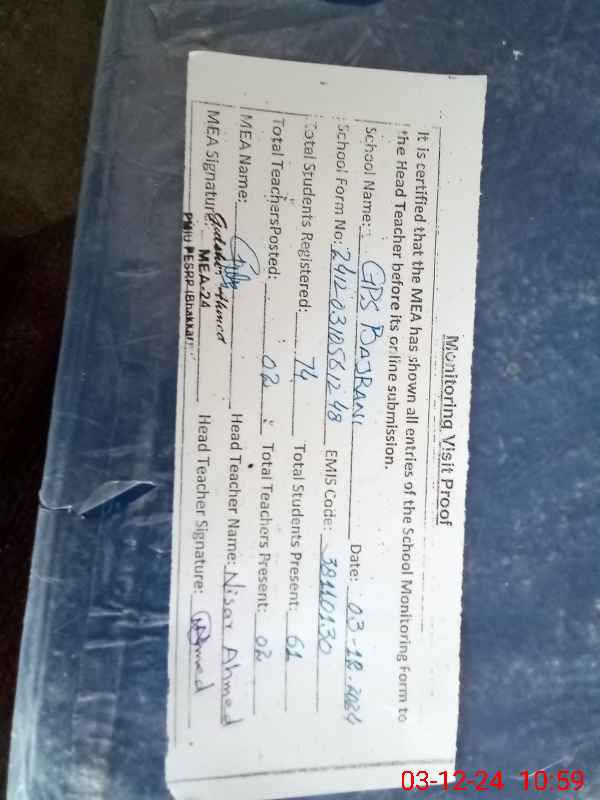 Monitoring Visit Proof
It is certified that the MEA has shown all entries of the School Monitoring form to
the Head Teacher before its online submission.
School Name: GPS BAJRANI Date: 03-12-2024
School Form No: EMIS Code: 38110130
Total Students Registered: 74 Total Students Present: 61
Total TeachersPosted: 02 Total Teachers Present: 02
MEA Name: Head Teacher Name: Nisar Ahmed
MEA Signature: Head Teacher Signature:
Ahmed
MEA-24
PMIU PESRP (Bhakkar)
03-12-24 10:59